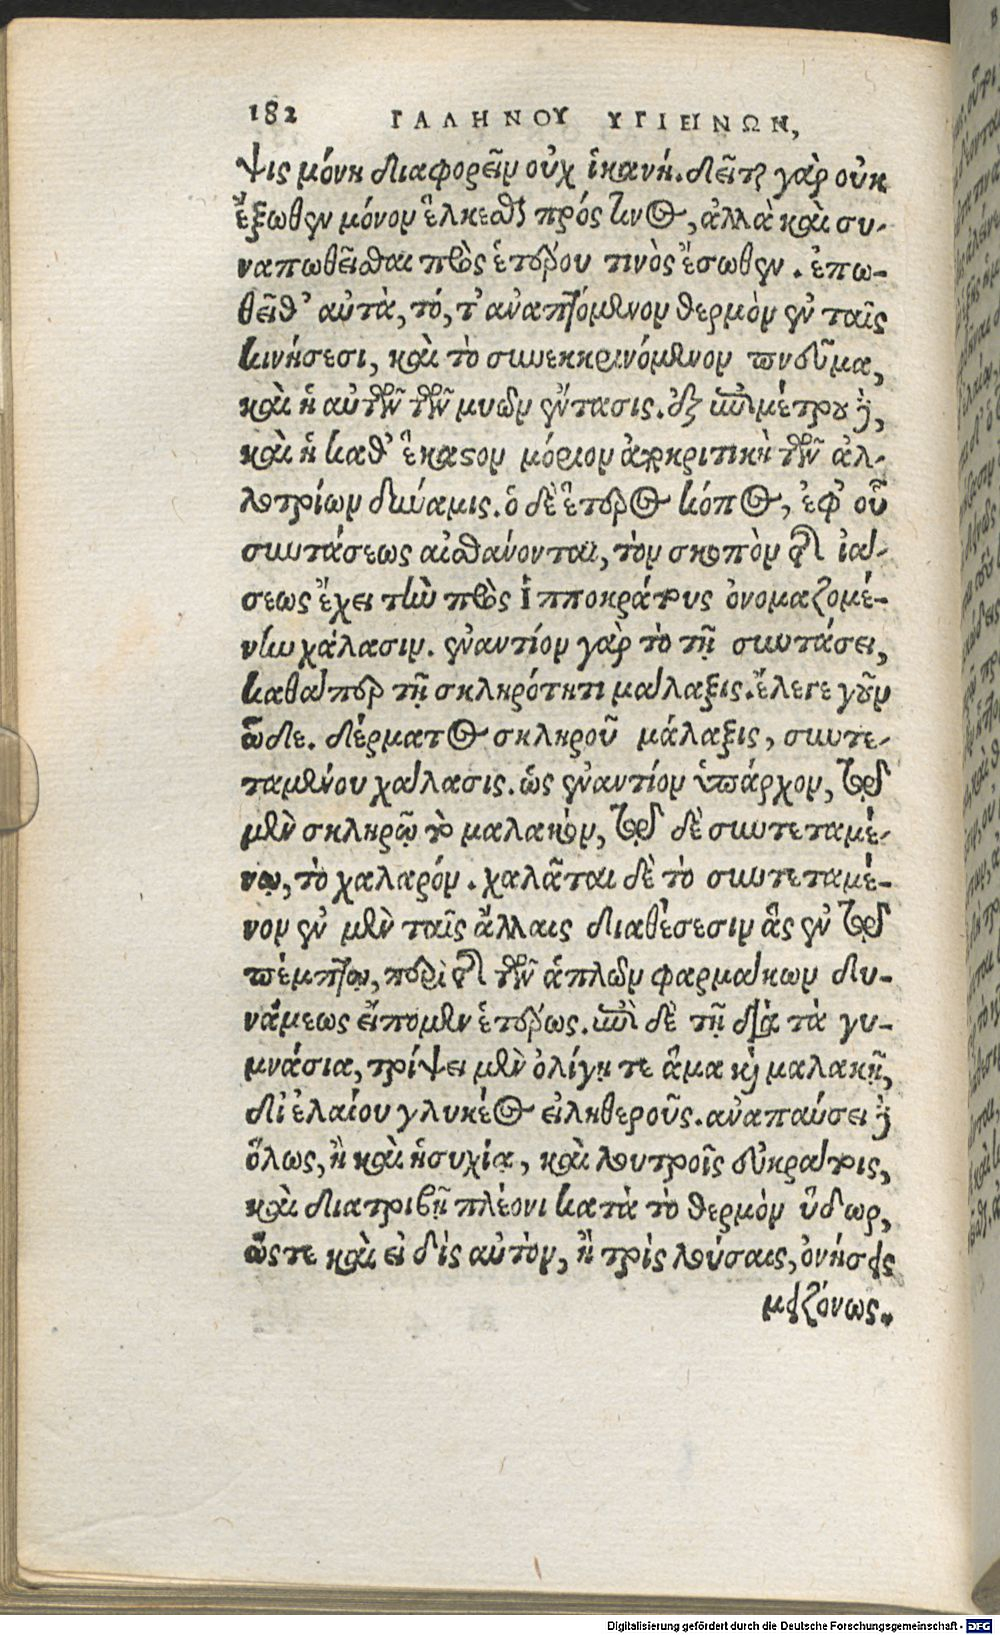 182 ΓΑΛΗΝΟΥ ΥΓΙΕΙΝΩΝ,
ψις μόνη διαφορεῖν οὐχ ἱκανή. δεῖται γὰρ οὐκ
ἔξωθεν μόνον ἕλκεσθαι πρός τινος, ἀλλὰ καὶ συ-
ναπωθεῖσθαι πρὸς ἑτέρου τινὸς ἔσωθεν. ἐπω-
θεῖθ' αὐτὰ, τό, τ' ἀναπτόμενον θερμὸν ἐν ταῖς
κινήσεσι, καὶ τὸ συνεκκρινόμενον πνεῦμα,
καὶ ἡ αὐτῶν τῶν μυῶν ἔντασις. ἐξ ἐπιμέτρου δὲ,
καὶ ἡ καθ' ἕκαστον μόριον ἀποκριτικὴ τῶν ἀλ-
λοτρίων δύναμις. ὁ δὲ ἕτερος κόπος, ἐφ' οὗ
συντάσεως αἰσθάνονται, τὸν σκοπὸν τῆς ἰά-
σεως ἔχει τὴν πρὸς Ἱπποκράτους ὀνομαζομέ-
νην χάλασιν. ἐναντίον γὰρ τὸ τῇ συντάσει,
καθάπερ τῇ σκληρότητι μάλαξις. ἔλεγε γοῦν
ὧδε. δέρματος σκληροῦ μάλαξις, συντε-
ταμένου χάλασις. ὡς ἐναντίον ὑπάρχον, τῷ
μὲν σκληρῷ τὸ μαλακόν, τῷ δὲ συντεταμέ-
νῳ, τὸ χαλαρόν. χαλᾶται δὲ τὸ συντεταμέ-
νον ἐν μὲν ταῖς ἄλλαις διαθέσεσιν ἃς ἐν τῷ
πέμπτῳ, περὶ τῆς τῶν ἁπλῶν φαρμάκων δυ-
νάμεως εἴπομεν ἑτέρως. ἐπὶ δὲ τῇ διὰ τὰ γυ-
μνάσια, τρίψει μὲν ὀλίγῃ τε ἅμα καὶ μαλακῇ,
δι' ἐλαίου γλυκέος εἰληθεροῦς. ἀναπαύσει δὲ
ὅλως, ἢ καὶ ἡσυχίᾳ, καὶ λουτροῖς εὐκράτοις,
καὶ διατριβῇ πλέονι κατὰ τὸ θερμὸν ὕδωρ,
ὥστε καὶ εἰ δὶς αὐτὸν, ἢ τρὶς λούσαις, ὀνήσεις
μειζόνως.
Digitalisierung gefördert durch die Deutsche Forschungsgemeinschaft - DFG